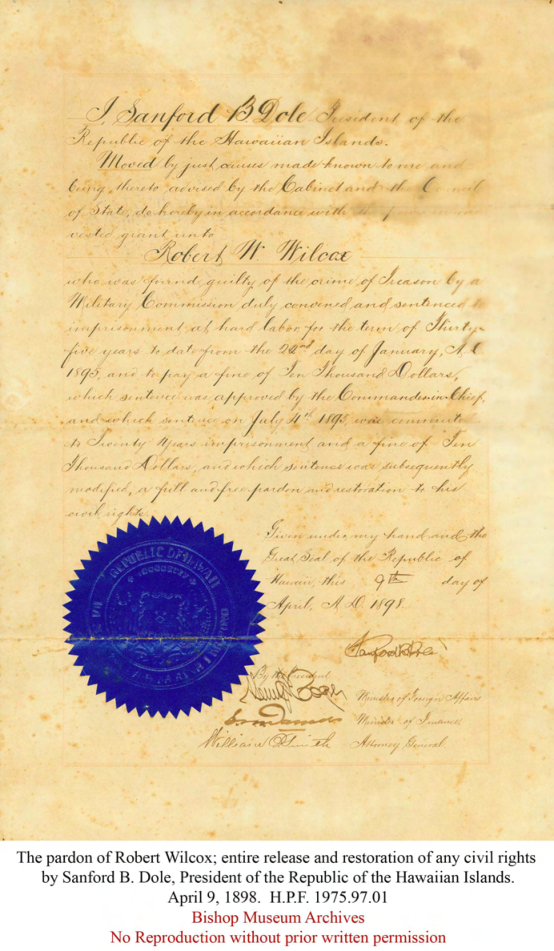 I Sanford B Dole President of the
Republic of the Hawaiian Islands.
Moved by just causes made known to me and
being thereto advised by the Cabinet and the
of State, do hereby in accordance with the
vested grant unto
Robert W Wilcox
who was found guilty of the crime of Treason by a
Military Commission duly convened and sentenced to
imprisonment at hard labor for the term of Thirty-
five years to date from the 22nd day of January, A.D.
1895, and to pay a fine of Ten Thousand Dollars,
which sentence was approved by the Commander in Chief,
and which sentence on July 4th 1895 was commuted
to Twenty Years imprisonment and a fine of Ten
Thousand Dollars, and which sentence was subsequently
modified, a full and free pardon and restoration to his
civil rights.
Given under my hand and the
Great Seal of the Republic of
Hawaii, this 9th day of
April, A.D. 1898.
REPUBLIC OF HAWAII
Sanford B. Dole
By the President
Minister of Foreign Affairs
Minister of Finance
William O Smith Attorney General
The pardon of Robert Wilcox; entire release and restoration of any civil rights
by Sanford B. Dole, President of the Republic of the Hawaiian Islands.
April 9, 1898. H.P.F. 1975.97.01
Bishop Museum Archives
No Reproduction without prior written permission